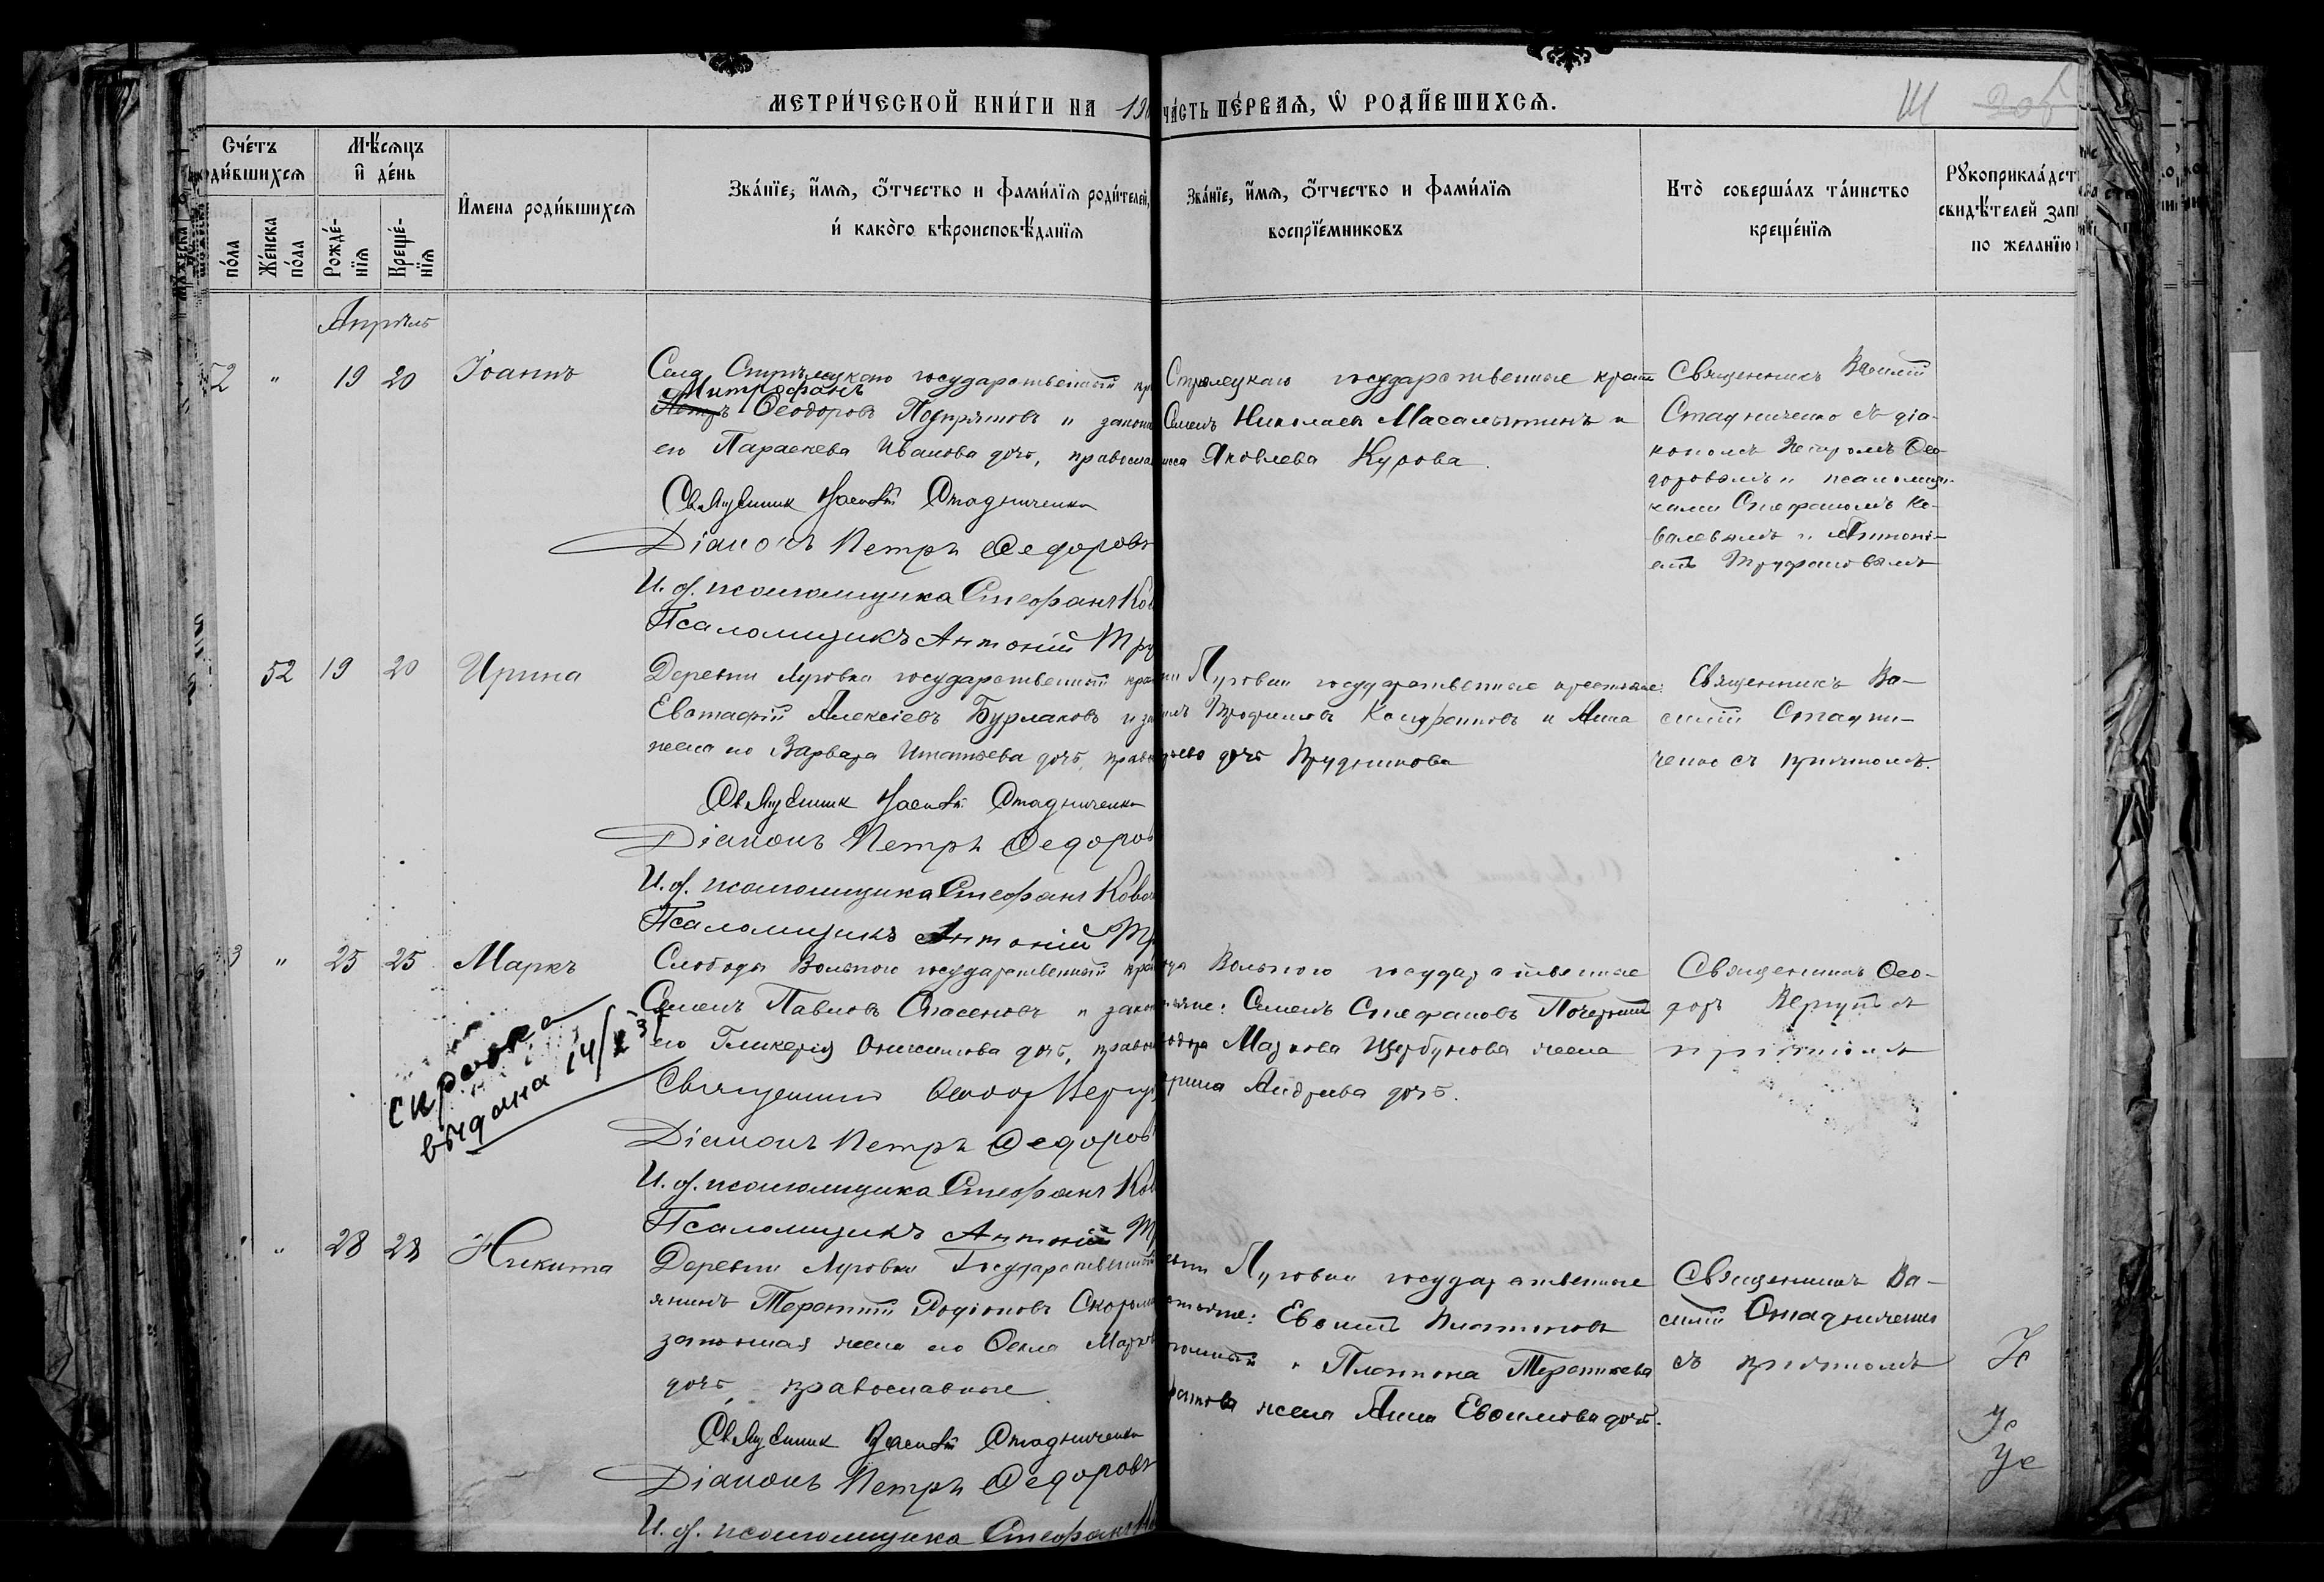 МЕТРИ́ЧЕСКОЙ КНИ́ГИ НА 19
ЧА́СТЬ ПЕ́РВАѦ, Ѡ҆ РОДИ́ВШИХСѦ.
Сче́тъ родившихсѧ
Мѣ́сѧцъ и҆ де́нь
по́ла
Же́нска по́ла
Рожде́-нїѧ
Креще́-нїѧ
И҆мена роди́вшихсѧ
Зва́нїе, и҆́мѧ, ѻ҆́тчество и фами́лїѧ роди́телей,
и҆ како́гѡ вѣроисповѣ́данїѧ
Зва́нїе, и҆́мѧ, ѻ҆́тчество и фами́лїѧ
воспрїе́мниковъ
Кто̀ соверша́лъ та́инство
креще́нїѧ
Рꙋкоприкла́дст
свидѣ́телей запи
по жела́нїю
Апрѣль
52 " 19 20 Іоаннъ
Села Стрѣлецкаго государственный кр
Митрофанъ
Петръ Ѳеодоровъ Подпрятовъ и законн
его Параскева Иванова дочь, православ
Священник Василій Стадниченко
Діаконъ Петръ Ѳедоровъ
И. д. псаломщика Стефанъ Ков
Псаломщикъ Антоній Тру
Стрелецкаго государственные крест
Семенъ Николаевъ Масалытинъ и
Яковлева Курова.
Священникъ Василій
Стадниченко съ діа-
кономъ Петромъ Ѳео-
доровымъ и псаломщи-
ками Стефаномъ Ко-
валевымъ и Антоні-
емъ Труфановымъ
52 19 20 Ирина
Деревни Луговки государственный кре
Евстафій Алексіевъ Бурлаковъ и за
жена его Варвара Игнатьева дочь, право
Священник Василій Стадниченко
Діаконъ Петръ Ѳедоров
И. д. псаломщика Стефанъ Кова
Псаломщикъ Антоній Тр
Луговки государственные крестьяне:
Трофимовъ и Анна
дочь Прудникова
Священникъ Ва-
силій Стадни-
ченко съ причтомъ.
3 " 25 25 Маркъ
Слободы Вольного государственный кре
Семенъ Павловъ Спасеновъ и закон
его Гликерія Онисимова дочь, право
Священник Ѳеодор Вергу
Діаконъ Петръ Ѳедоров
И. д. псаломщика Стефанъ Ков
Псаломщикъ Антоній Т
Вольного государственные
Семенъ Стефановъ
Маркова Щербунова жена
Андреева дочь.
Священникъ Ѳео-
доръ Вергунъ съ
причтомъ
справка
выдана 14/
" 28 28 Никита
Деревни Луговки Государственный
янинъ Терентій Родіоновъ
законная жена его Ѳекла Марков
дочь, православные
Священник Василій Стадниченко
Діаконъ Петръ Ѳедоровъ
И. д. псаломщика Стефанъ Ко
Луговки государственные
Евѳимъ Платоновъ
и Платона Терентьева
жена Анна Евѳимова дочь.
Священникъ Ва-
силій Стадниченко
съ причтомъ